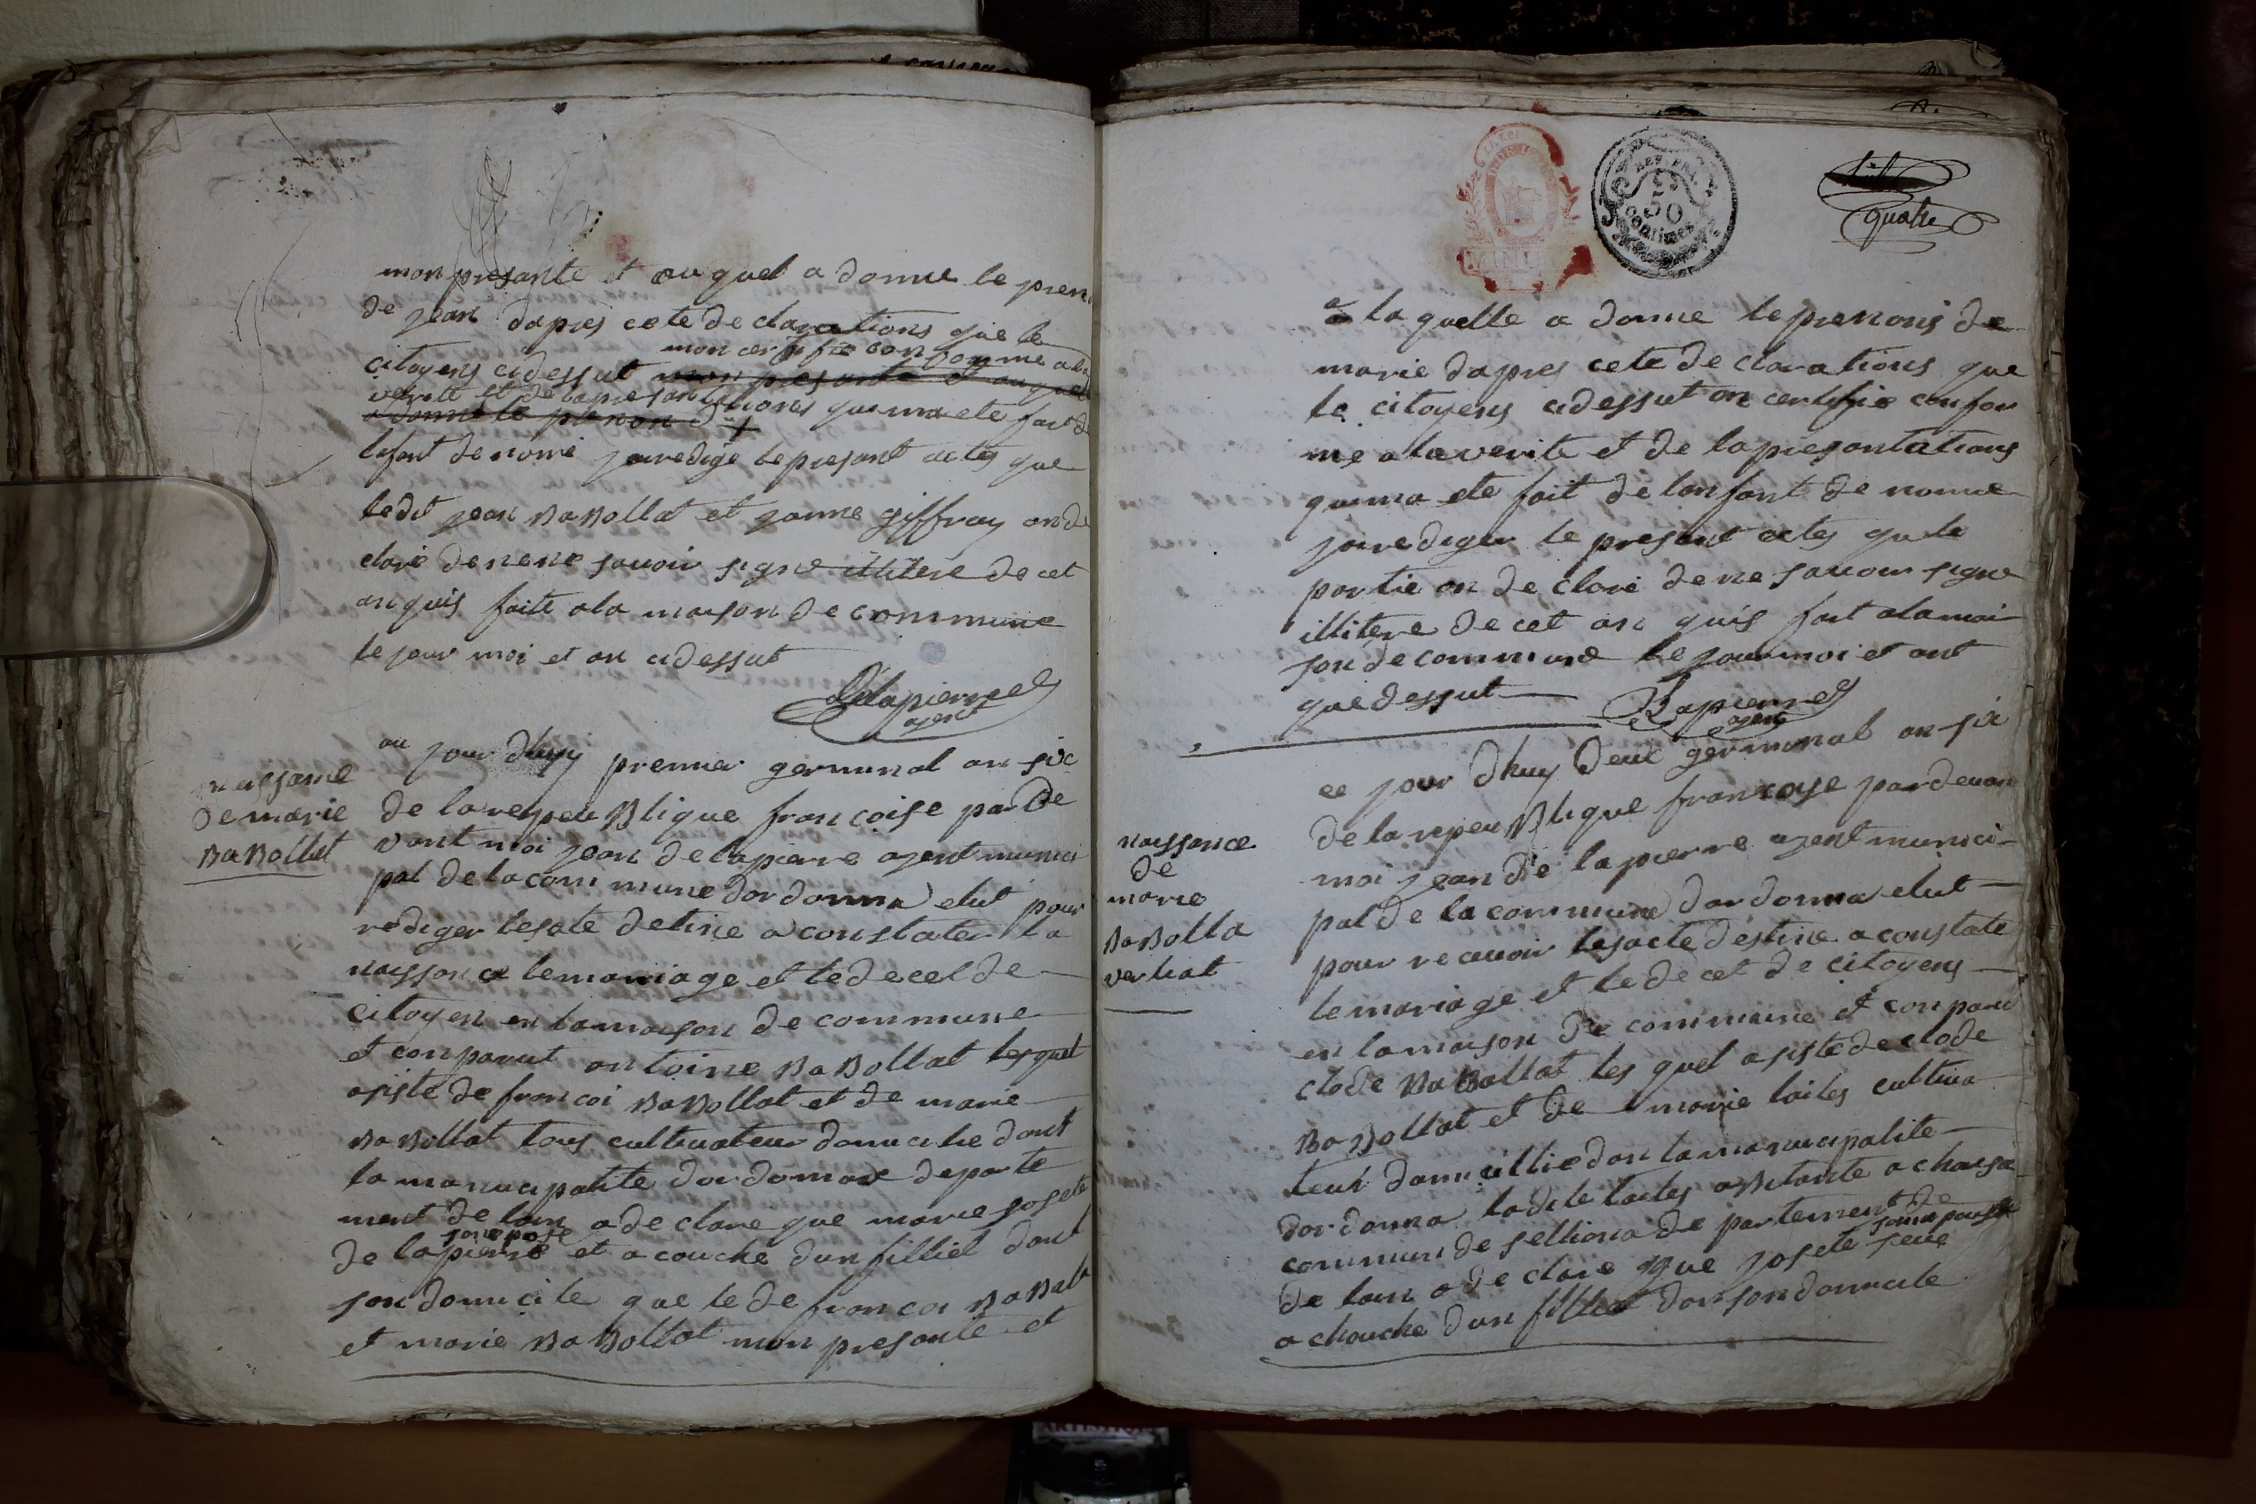 mon presante et au quel a donne le pren
de jean dapres cete de clarations que le
citoyens cidessut mon presante et au quel
mon cer ti fie con forme a la
verite et de la presantations qui ma ete fait de
a donne le prenon de
lefant de nomé jairedigé le presant actes que
ledit jean BaBollat et janne giffray on de
claré de nene savoir signe illitere de cet
an quis faite a la maison de commune
le jour moi et an cidessut
Delapierre
agent
naissance
de marie
BaBollat
au jour dhuy premier germinal an six
de la repeu Blique francoise par De
vant moi jean delapierre agent munici
pal de la commune dordonna elut pour
rediger lesate detine a constater la
naissan ce le mariage et le decel de
citoyen en la maison de commune
et conparut antoine BaBollat lesquel
asiste de francoi BaBollat et de marie
BaBollat tous cultivateur domicilie dont
la manucipalite dordonna departe
ment de lain a de clare que marie josete
son epose
de lapierre et a couche dun filliel dont
son domicile que le de francoi BaBolla
et marie BaBollat mon presante et
REP. FRA.
50
centimes
quatre
a la quelle a donne leprenons de
marie dapres cete de clarations que
le citoyens cidessut on certifie confor
me a la verite et de la presantations
qui ma ete fait de lanfant de nomme
jairediger le presant actes que le
partie on de claré de ne savoir signe
illitere de cet an quis fait a la mai
son de commune le jour moi et ant
que dessut
Lapierre
agent
naissance
de
marie
BaBolla
verliat
ce jour dhuy Deux germinal an six
de la repeu Blique francoise pardevan
moi jean de lapierre agent munici
pal de la commune dordonna elut
pour recevoir lesacte destine a constate
le mariage et le de cet de citoyens
en la maison de commune et conparu
clode BaBollat les quel asiste de clode
BaBollat et de marie laites cultiva
teur domicillie don la manucipalite
dordonna ladite laites aBitante a charsa
commun de selliona de partement de
son epouse
de lain a de clare que josete seve
a chouche dun filliel dan son domicile